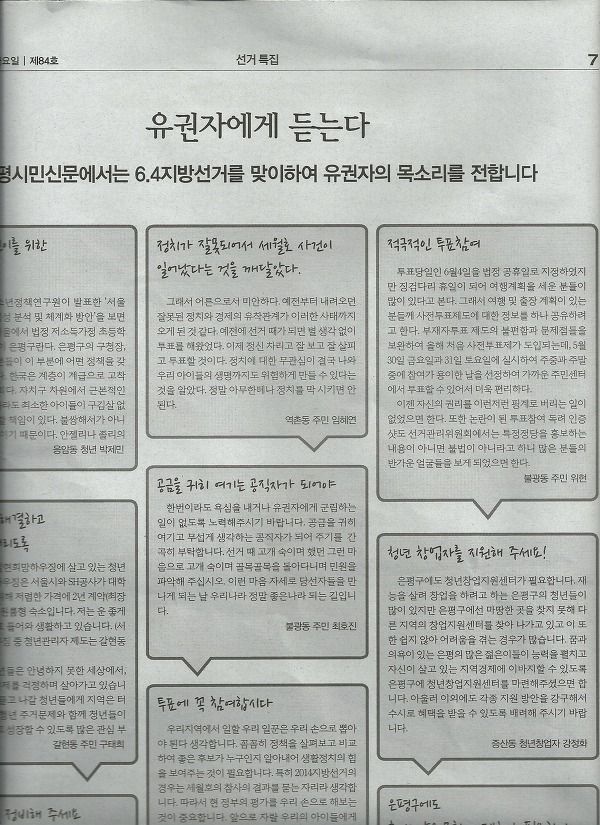 요일 | 제84호
선거 특집
7
유권자에게 듣는다
평시민신문에서는 6.4지방선거를 맞이하여 유권자의 목소리를 전합니다
이를 위한
년정책연구원이 발표한 '서울
성 분석 및 체계화 방안'을 보면
울에서 법정 저소득가정 초등학
은 은평구란다. 은평구의 구청장,
들이 이 부분에 어떤 정책을 갖
한국은 계층이 계급으로 고착
다. 자치구 차원에서 근본적인
라도 최소한 아이들이 구김살 없
책임이 있다. 불쌍해서가 아니
기 때문이다. 안젤리나 졸리의
응암동 청년 박제민
해결하고
리도록
현희망하우징에 살고 있는 청년
우징은 서울시와 SH공사가 대학
해 저렴한 가격에 2년 계약(최장
원룸형 숙소입니다. 저는 운 좋게
들어와 생활하고 있습니다. (서
중 청년관리자 제도는 갈현동
들은 안녕하지 못한 세상에서,
제를 걱정하며 살아가고 있습니
들고 나갈 청년들에게 지역은 터
청년 주거문제와 함께 청년들이
성장할 수 있도록 많은 관심 부
갈현동 주민 구태희
정비해 주세요
정치가 잘못되어서 세월호 사건이
일어났다는 것을 깨달았다.
그래서 어른으로서 미안하다. 예전부터 내려오던
잘못된 정치와 경제의 유착관계가 이러한 사태까지
오게 된 것 같다. 예전에 선거 때가 되면 별 생각 없이
투표를 해왔었다. 이제 정신 차리고 잘 보고 잘 살피
고 투표할 것이다. 정치에 대한 무관심이 결국 나와
우리 아이들의 생명까지도 위험하게 만들 수 있다는
것을 알았다. 정말 아무한테나 정치를 막 시키면 안
된다.
역촌동 주민 임혜연
공금을 귀히 여기는 공직자가 되어야
한번이라도 욕심을 내거나 유권자에게 군림하는
일이 없도록 노력해주시기 바랍니다. 공금을 귀히
여기고 무섭게 생각하는 공직자가 되어 주기를 간
곡히 부탁합니다. 선거 때 고개 숙이며 했던 그런 마
음으로 고개 숙이며 골목골목을 돌아다니며 민원을
파악해 주십시오. 이런 마음 자세로 당선자들을 만
나게 되는 날 우리나라 정말 좋은나라 되는 길입니
다.
불광동 주민 최호진
투표에 꼭 참여합시다
우리지역에서 일할 우리 일꾼은 우리 손으로 뽑아
야 된다 생각합니다. 꼼꼼히 정책을 살펴보고 비교
하여 좋은 후보가 누구인지 알아내어 생활정치의 힘
을 보여주는 것이 필요합니다. 특히 2014지방선거의
경우는 세월호의 참사의 결과를 묻는 자리라 생각합
니다. 따라서 현 정부의 평가를 우리 손으로 해보는
것이 중요합니다. 앞으로 자랄 우리의 아이들에게
적극적인 투표참여
투표당일인 6월4일을 법정 공휴일로 지정하였지
만 징검다리 휴일이 되어 여행계획을 세운 분들이
많이 있다고 본다. 그래서 여행 및 출장 계획이 있는
분들께 사전투표제도에 대한 정보를 하나 공유하려
고 한다. 부재자투표 제도의 불편함과 문제점들을
보완하여 올해 처음 사전투표제가 도입되는데, 5월
30일 금요일과 31일 토요일에 실시하여 주중과 주말
중에 참여가 용이한 날을 선정하여 가까운 주민센터
에서 투표할 수 있어서 더욱 편리하다.
이젠 자신의 권리를 이런저런 핑계로 버리는 일이
없었으면 한다. 또한 논란이 된 투표참여 독려 인증
샷도 선거관리위원회에서는 특정정당을 홍보하는
내용이 아니면 불법이 아니라고 하니 많은 분들의
반가운 얼굴들을 보게 되었으면 한다.
불광동 주민 위현
청년 창업자를 지원해 주세요!
은평구에도 청년창업지원센터가 필요합니다. 재
능을 살려 창업을 하려고 하는 은평구의 청년들이
많이 있지만 은평구에선 마땅한 곳을 찾지 못해 다
른 지역의 창업지원센터를 찾아 나가고 있고 이 또
한 쉽지 않아 어려움을 겪는 경우가 많습니다. 꿈과
의욕이 있는 은평의 많은 젊은이들이 능력을 펼치고
자신이 살고 있는 지역경제에 이바지할 수 있도록
은평구에 청년창업지원센터를 마련해주셨으면 합
니다. 아울러 이외에도 각종 지원 방안을 강구해서
수시로 혜택을 받을 수 있도록 배려해 주시기 바랍
니다.
증산동 청년창업자 강정화
은평구에도